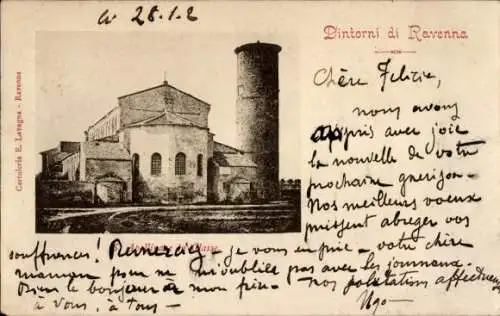 a 28.1.2
Dintorni di Ravenna
Cartoleria E. Lavagna - Ravenna
Chère Felicie,
nous avons
appris avec joie
la nouvelle de votre
prochaine guerison.
Nos meilleurs voeux
puissent abreger vos
souffrances! Remerciez, je vous en prie, votre chère
maman pour ne m'oublie pas avec les journaux.
Bien le bonjour de mon frère. Nos salutations affectueuses
à vous, à tous -
Ugo